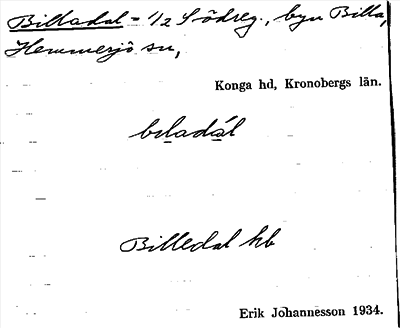 Billadal - 1/2 Södreg., byn Billa,
Hemmesjö sn,
Konga hd, Kronobergs län.
biladál
Billedal kb
Erik Johannesson 1934.